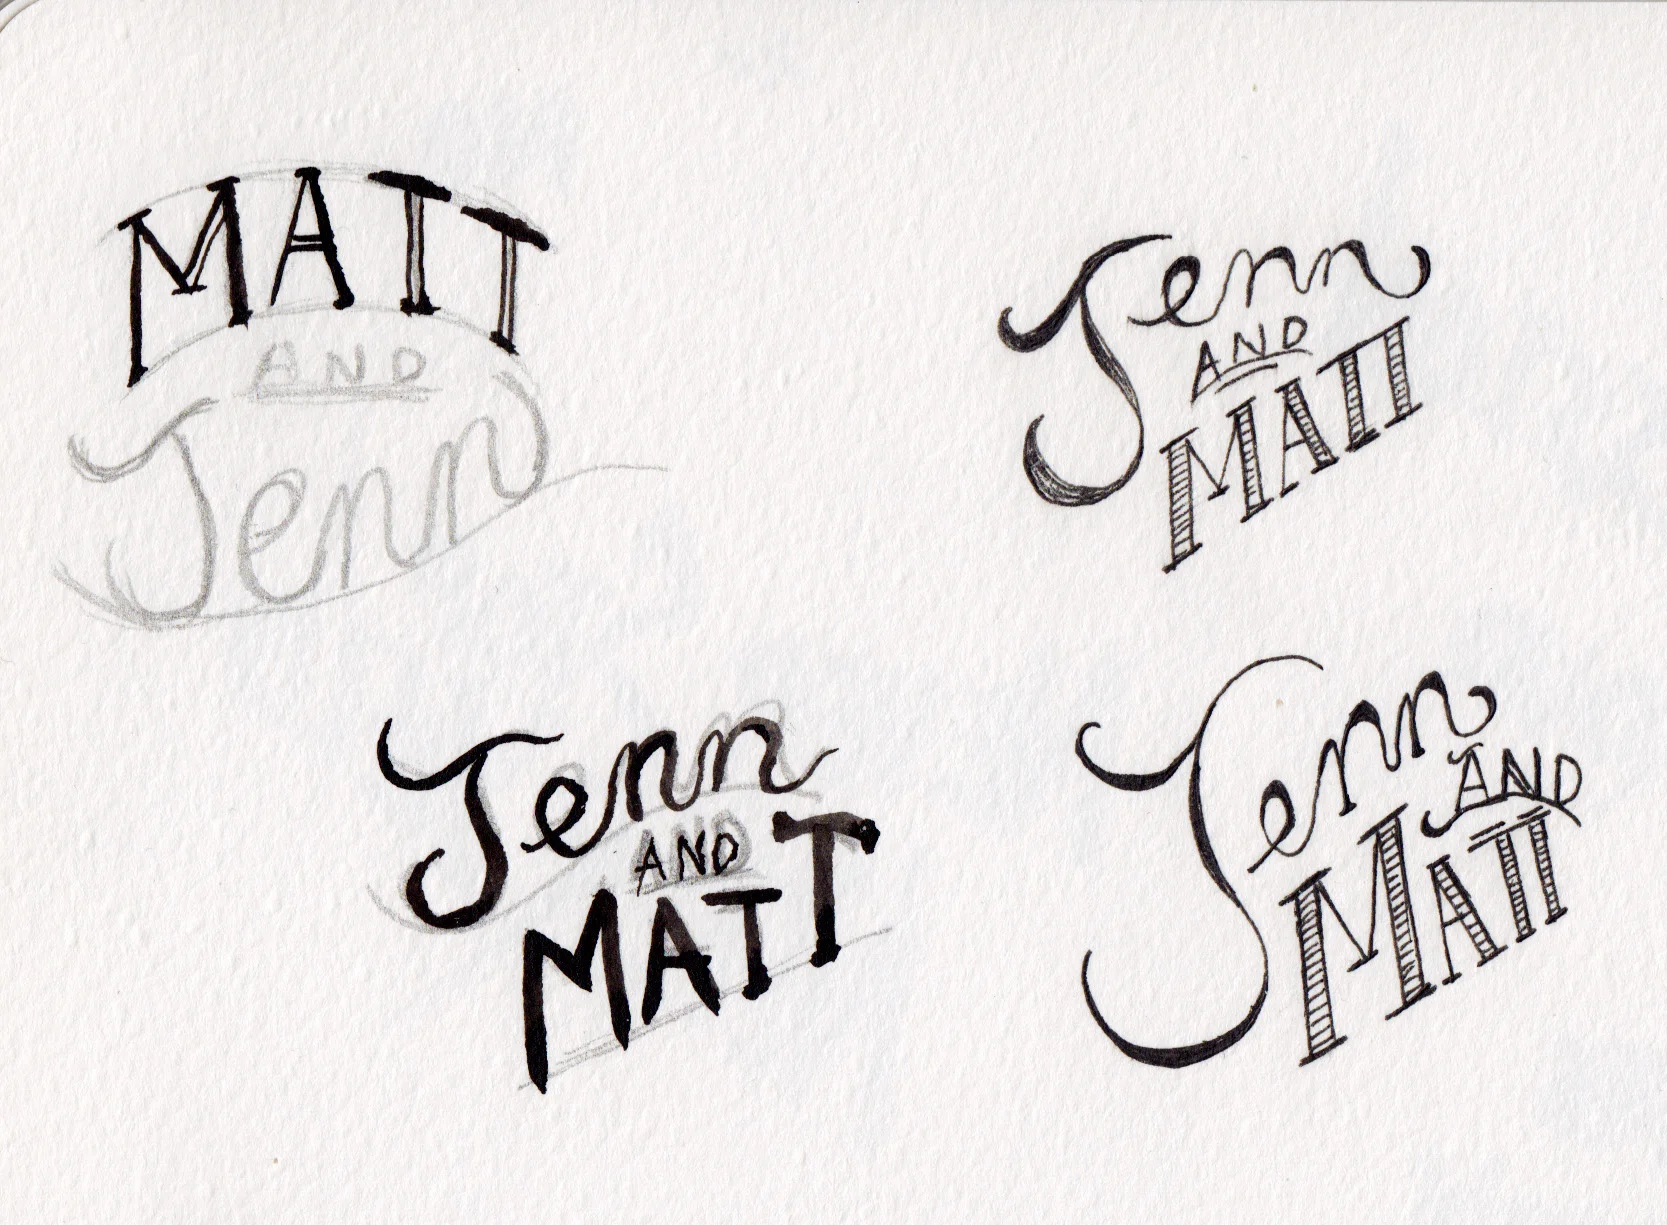 MATT
AND
Jenn
Jenn
AND
MATT
Jenn
AND
MATT
Jenn
AND
MATT